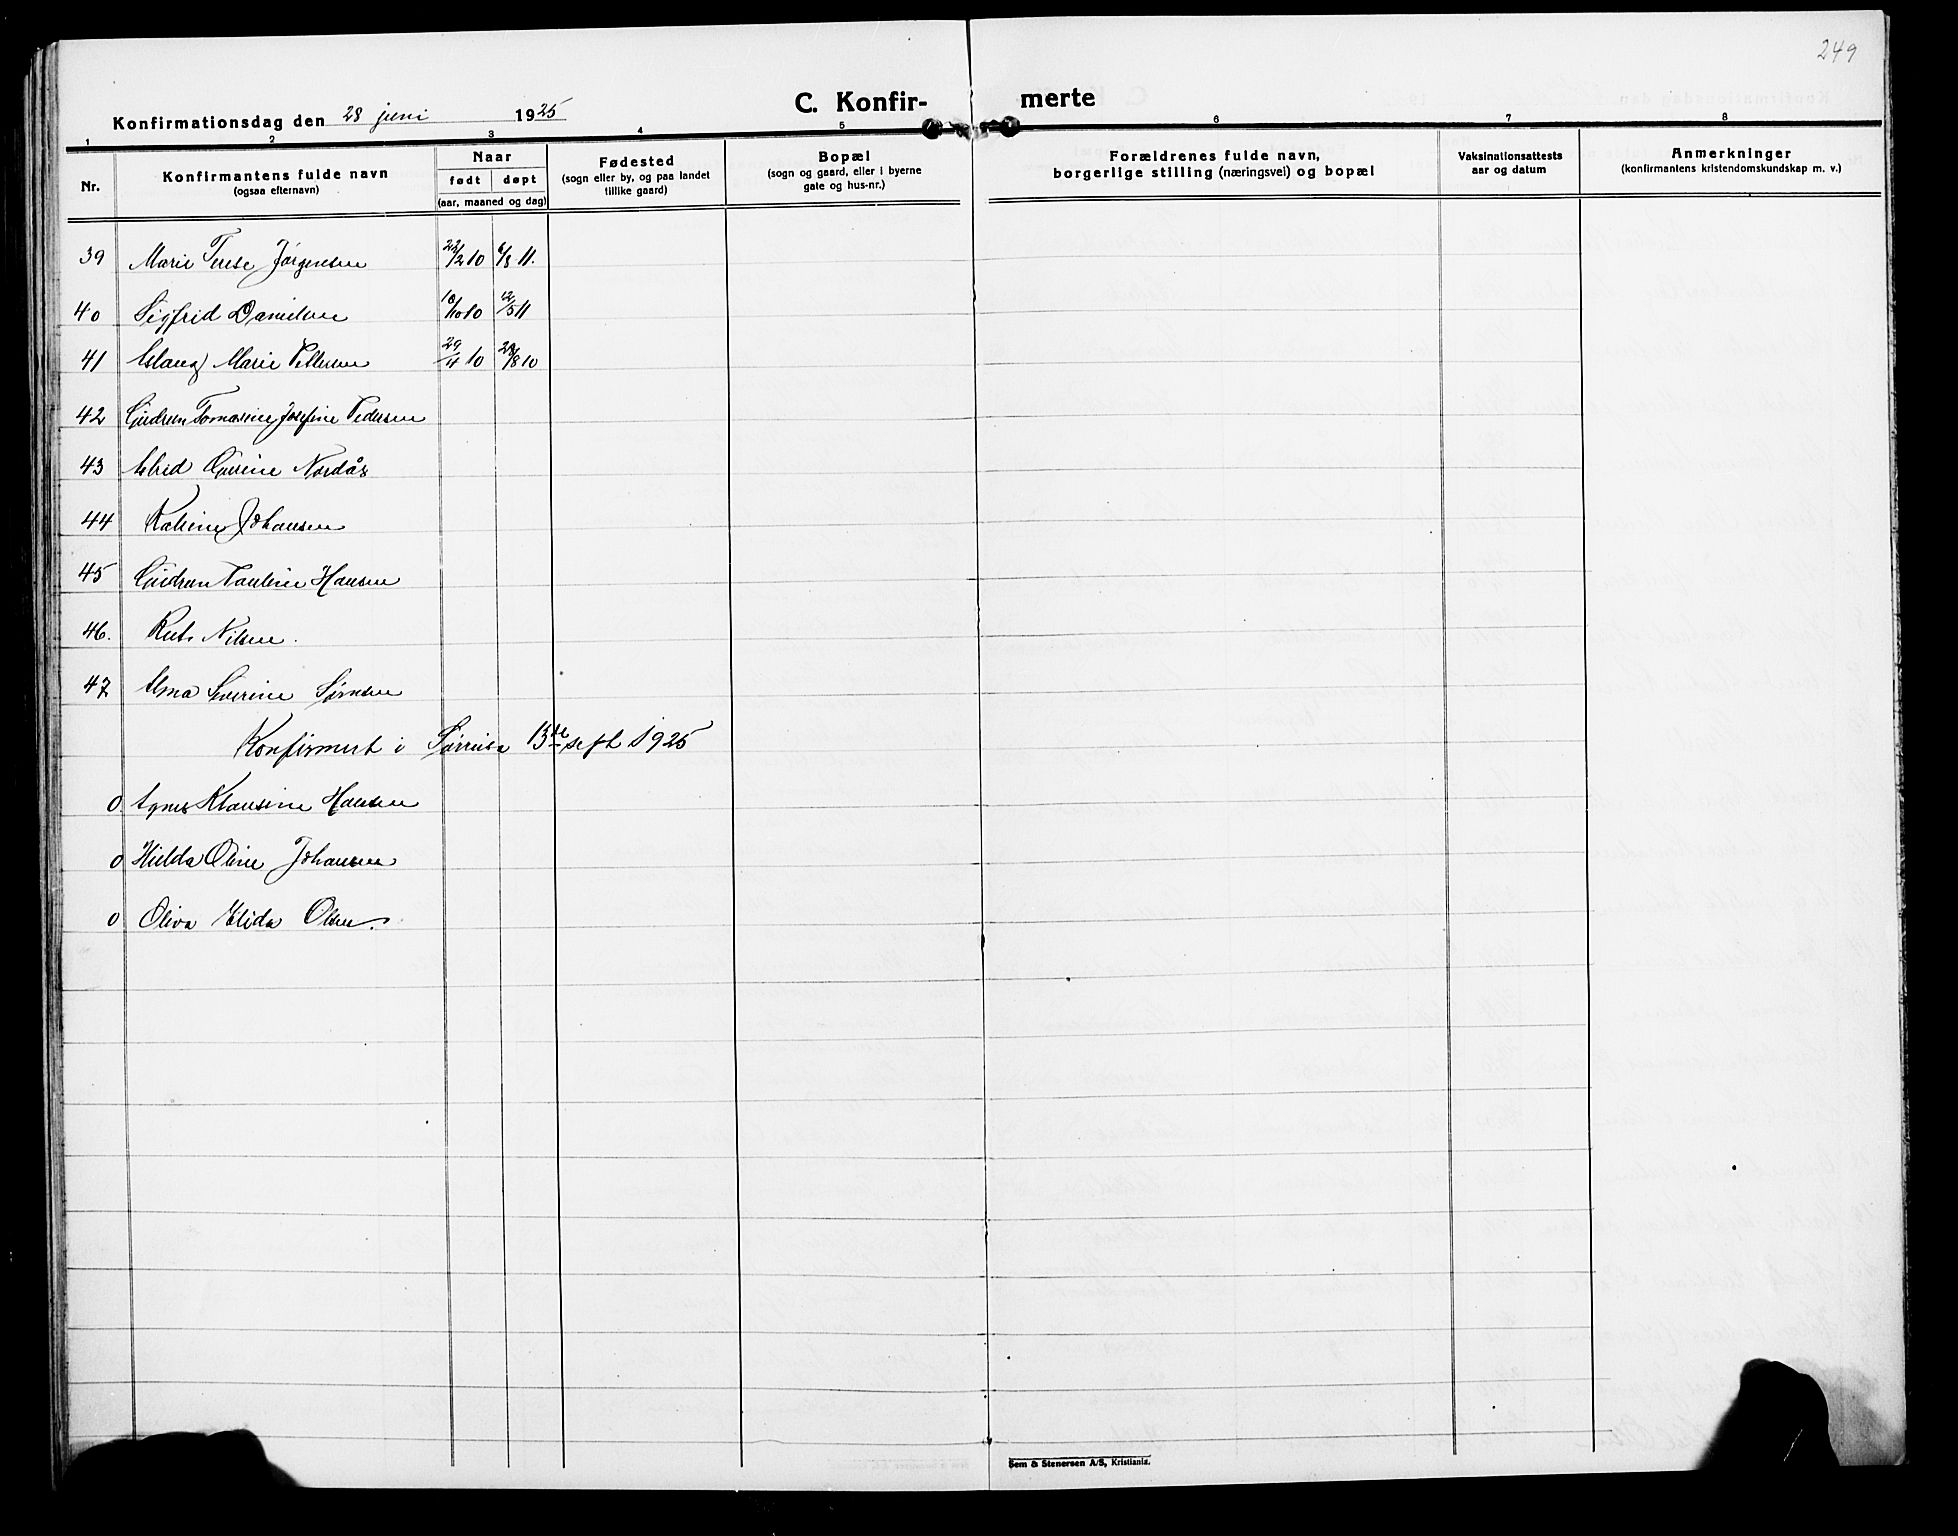 249
C. Konfir- merte
Konfirmationsdag den 28 juni 1925
1 2 3 4 5 6 7 8
Nr.
Konfirmantens fulde navn
(ogsaa efternavn)
Naar
født døpt
(aar, maaned og dag)
Fødested
(sogn eller by, og paa landet
tillike gaard)
Bopæl
(sogn og gaard, eller i byerne
gate og hus-nr.)
Forældrenes fulde navn,
borgerlige stilling (næringsvei) og bopæl
Vaksinationsattests
aar og datum
Anmerkninger
(konfirmantens kristendomskundskap m. v.)
39 Marie Terese Jørgensen 22/2 10 6/8 11.
40 Sigfrid Danielsen 18/10 10 12/5 11
41 Aslaug Marie Pettersen 29/4 10 28/8 10
42 Gudrun Tomasine Josefine Pedersen
43 Astrid Nordås
44 Katrine Johansen
45 Gudrun Pauline Hansen
46. Rut Nilsen.
47 Alma Severine Sørensen
Konfirmert i Sørreisa 13de sept 1925
0 Agnes Klausine Hansen
0 Hilda Oline Johansen
0 Oliva Elida Olsen.
Sem & Stenersen A/S, Kristiania.